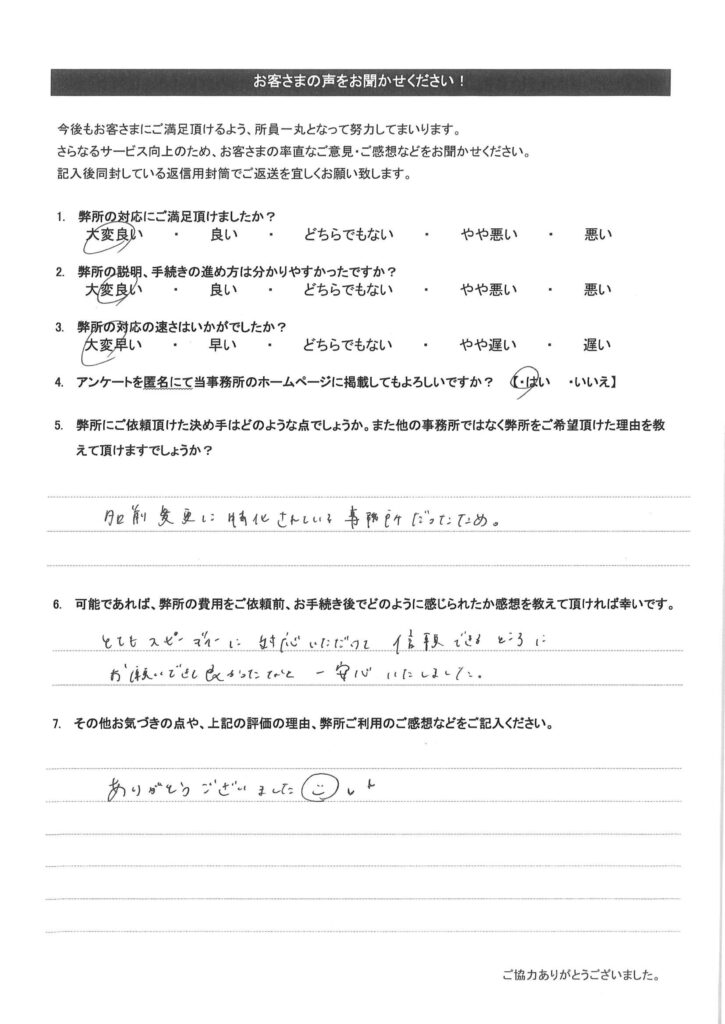 お客さまの声をお聞かせください！
今後もお客さまにご満足頂けるよう、所員一丸となって努力してまいります。
さらなるサービス向上のため、お客さまの率直なご意見・ご感想などをお聞かせください。
記入後同封している返信用封筒でご返送を宜しくお願い致します。
1. 弊所の対応にご満足頂けましたか？
大変良い ・ 良い ・ どちらでもない ・ やや悪い ・ 悪い
2. 弊所の説明、手続きの進め方は分かりやすかったですか？
大変良い ・ 良い ・ どちらでもない ・ やや悪い ・ 悪い
3. 弊所の対応の速さはいかがでしたか？
大変早い ・ 早い ・ どちらでもない ・ やや遅い ・ 遅い
4. アンケートを匿名にて当事務所のホームページに掲載してもよろしいですか？ 【・はい ・いいえ】
5. 弊所にご依頼頂けた決め手はどのような点でしょうか。また他の事務所ではなく弊所をご希望頂けた理由を教
えて頂けますでしょうか？
変更に特化されている事務所だったため。
6. 可能であれば、弊所の費用をご依頼前、お手続き後でどのように感じられたか感想を教えて頂ければ幸いです。
とてもスピーディーに対応いただけて 信頼できるところに
お願いできて良かったなと 一安心いたしました。
7. その他お気づきの点や、上記の評価の理由、弊所ご利用のご感想などをご記入ください。
ありがとうございました
ご協力ありがとうございました。